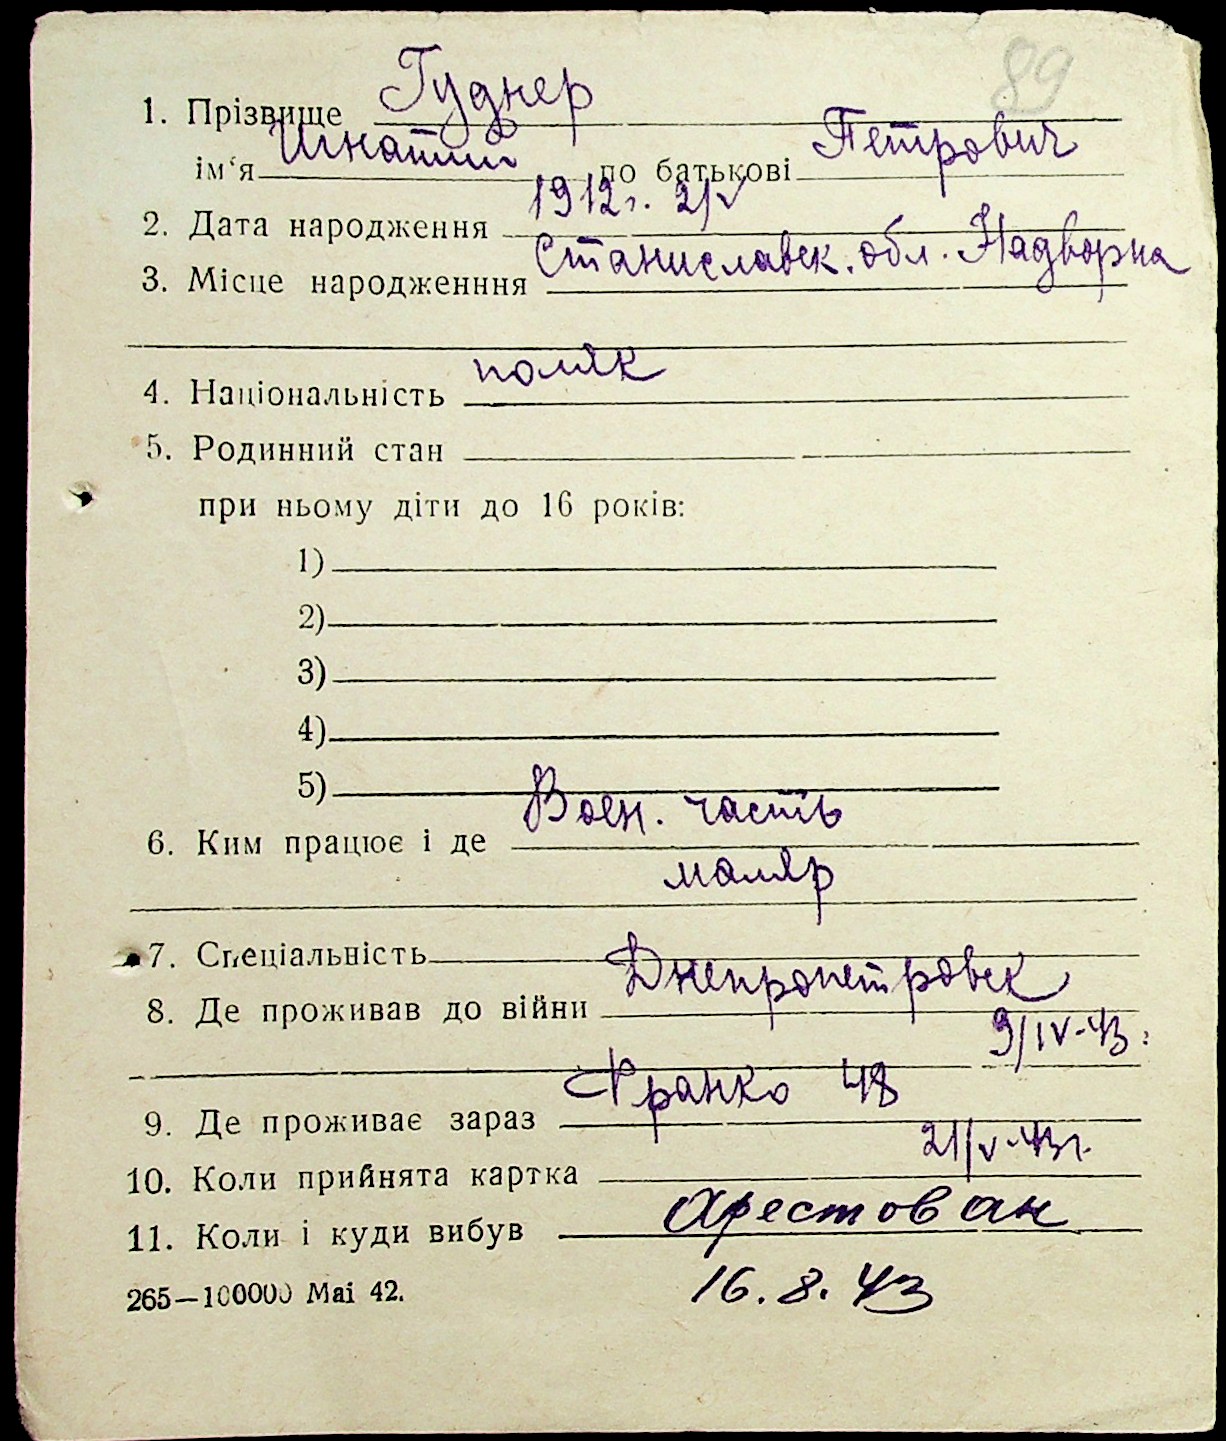 89
1. Прізвище Гуднер
ім‘я Игнатий по батькові Петрович
2. Дата народження 1912 г. 2/V
3. Місце народженння Станиславск. обл. Надворна
4. Національність поляк
5. Родинний стан
при ньому діти до 16 років:
1)
2)
3)
4)
5)
6. Ким працює і де Воен. часть
маляр
7. Спеціальність
8. Де проживав до війни Днепропетровск
9/IV-43г.
9. Де проживає зараз Франко 48
10. Коли прийнята картка 21/V-43г.
11. Коли і куди вибув Арестован
265—100000 Mai 42. 16.8.43